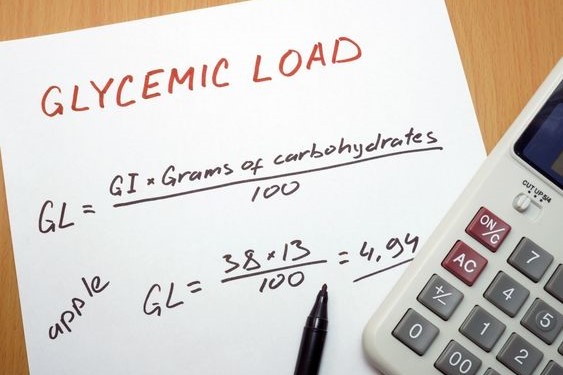 GLYCEMIC LOAD
GL = GI × Grams of carbohydrates
100
apple
GL = 38 × 13 = 4,94
100
CUT UP 5/4
ON/C
AC
7
+/-
4
5
0
1
2
00